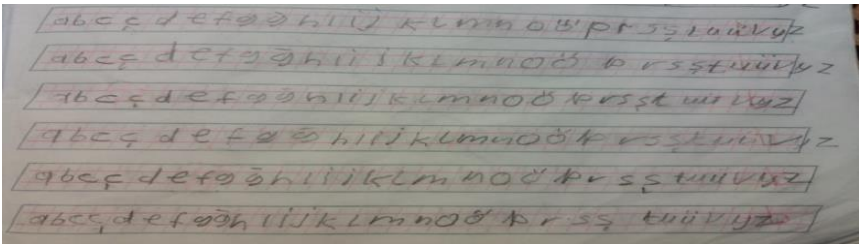 abcçdefgğhıijklmnoöprsştuüvyz
abcçdefgğhıijklmnoöprsştuüvyz
abcçdefgğhıijklmnoöprsştuüvyz
abcçdefgğhıijklmnoöprsştuüvyz
abcçdefgğhıijklmnoöprsştuüvyz
abcçdefgğhıijklmnoöprsştuüvyz